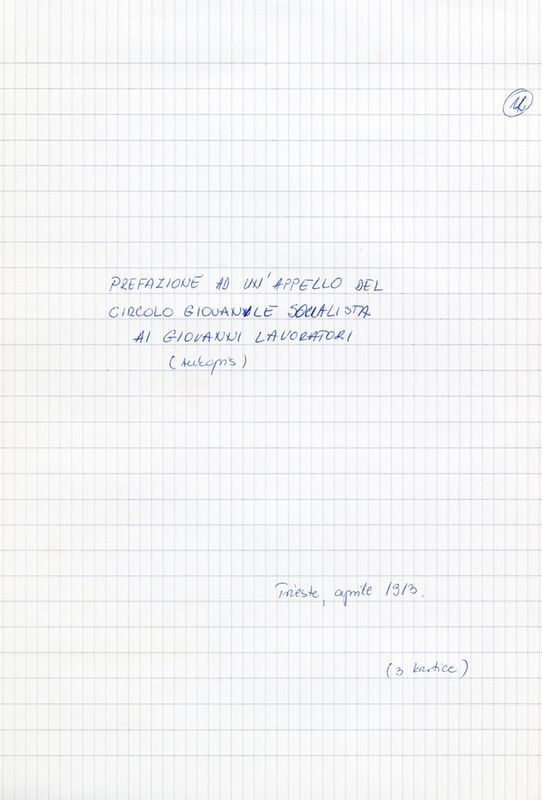 PREFAZIONE AD UN'APPELLO DEL
CIRCOLO GIOVANILE SOCIALISTA
AI GIOVANNI LAVORATORI
(rukopis)
Trieste, aprile 1913.
(3 kartice)